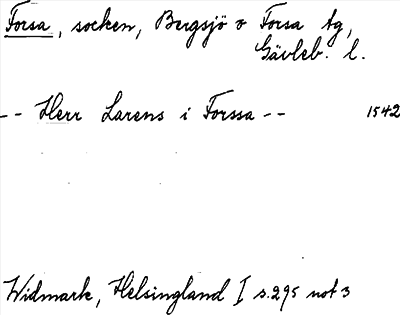 Forsa, socken, Bergsjö o Forsa tg,
Gävleb. l.
-- Herr Larens i Forssa -- 1542
Widmark, Helsingland I s. 295 not 3